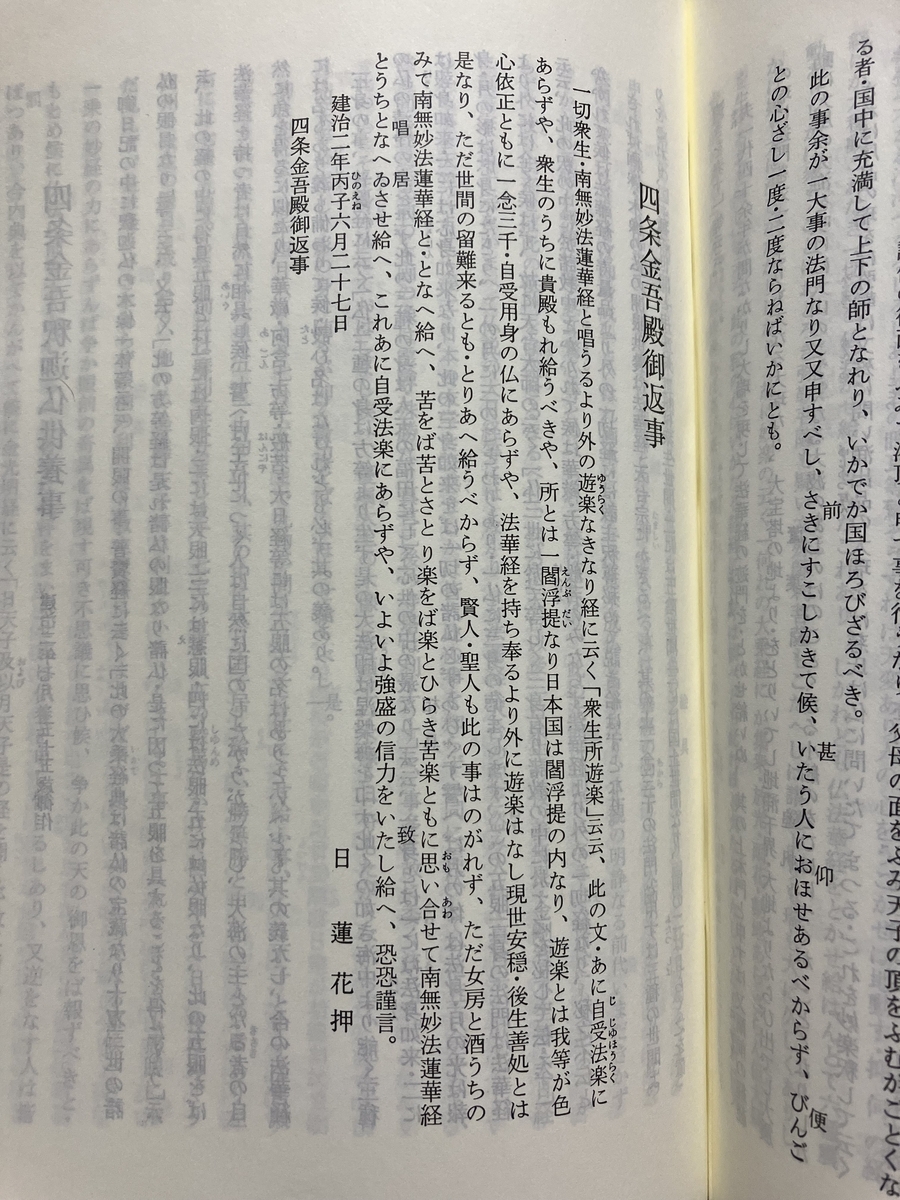 父母の面をふみ天子の頂をふむがごとくな
る者・国中に充満して上下の師となれり、いかでか国ほろびざるべき。
此の事余が一大事の法門なり又又申すべし、さきにすこしかきて候、いたう人におほせあるべからず、びんご
前 甚 仰 便
との心ざし一度・二度ならねばいかにとも。
四条金吾殿御返事
一切衆生・南無妙法蓮華経と唱うるより外の遊楽なきなり経に云く「衆生所遊楽」云云、此の文・あに自受法楽に
ゆうらく じ じゆほうらく
あらずや、衆生のうちに貴殿もれ給うべきや、所とは一閻浮提なり日本国は閻浮提の内なり、遊楽とは我等が色
えんぶ だい
心依正ともに一念三千・自受用身の仏にあらずや、法華経を持ち奉るより外に遊楽はなし現世安穏・後生善処とは
是なり、ただ世間の留難来るとも・とりあへ給うべからず、賢人・聖人も此の事はのがれず、ただ女房と酒うちの
みて南無妙法蓮華経と・となへ給へ、苦をば苦とさとり楽をば楽とひらき苦楽ともに思い合せて南無妙法蓮華経
おも あわ
とうちとなへゐさせ給へ、これあに自受法楽にあらずや、いよいよ強盛の信力をいたし給へ、恐恐謹言。
唱 居 致
建治二年丙子六月二十七日
ひのえね
日蓮花押
四条金吾殿御返事